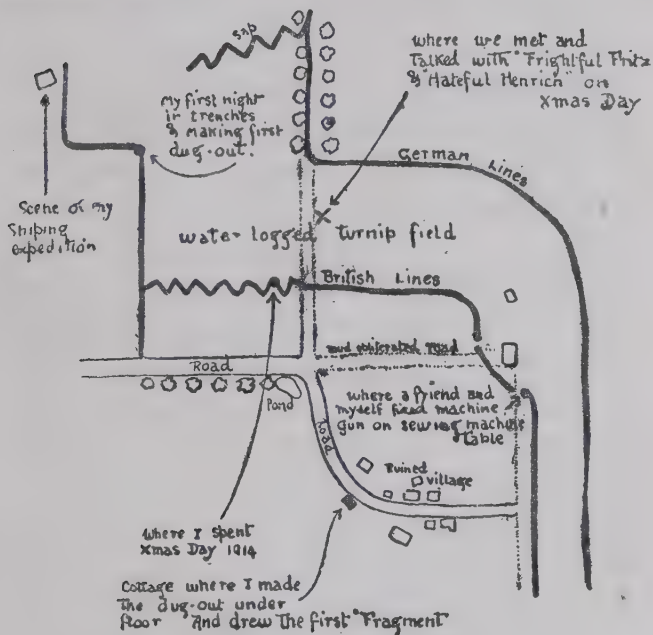 Sap
where we met and
Talked with "Frightful Fritz
& "Hateful Henrich" on
Xmas Day
My first night
in trenches
& making first
dug-out.
German Lines
Scene of my
Sniping
expedition
water logged turnip field
British Lines
mud obliterated road
Road
Pond
Road
where a friend and
myself fixed machine
gun on sewing machine
table
Ruined
village
where I spent
Xmas Day 1914
Cottage where I made
The dug-out under
floor And drew The first "Fragment